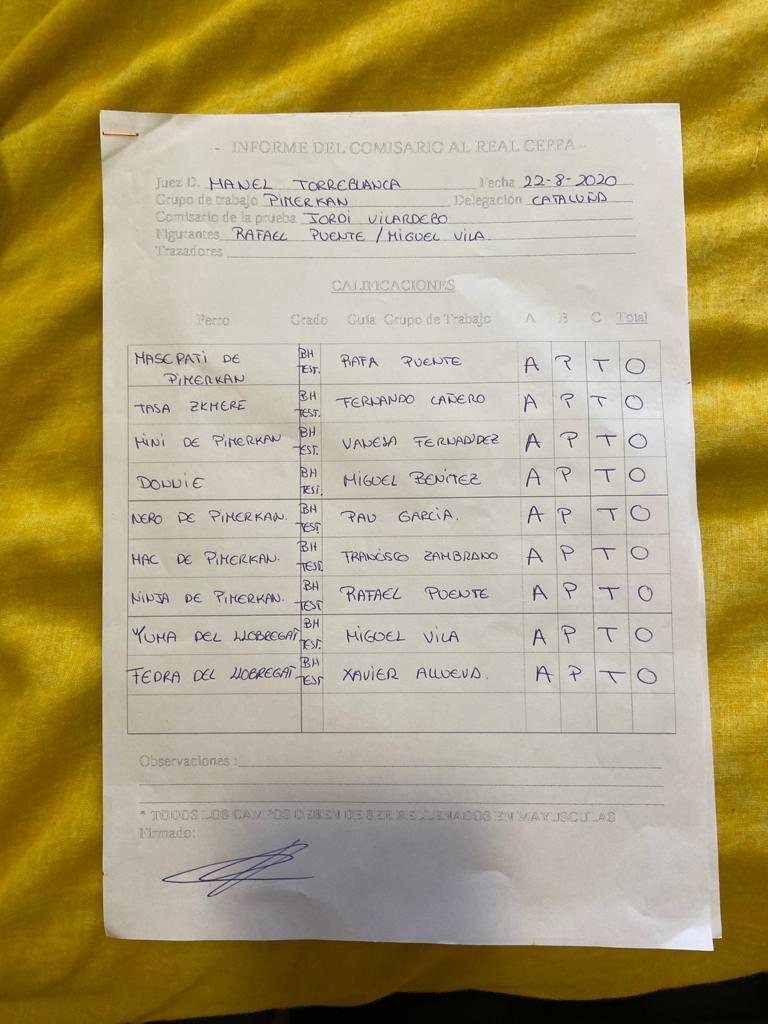 - INFORME DEL COMISARIO AL REAL CEPPA -
Juez D. MANEL TORREBLANCA Fecha 22-8-2020
Grupo de trabajo PIMERKAN Delegación CATALUÑA
Comisario de la prueba JORDI VILARDEBO
Figurantes RAFAEL PUENTE / MIGUEL VILA
Trazadores
CALIFICACIONES
Perro Grado Guía Grupo de Trabajo A B C Total
MASCPATI DE PIMERKAN BH TEST. RAFA PUENTE A P T O
TASA ZKMERE BH TEST. FERNANDO CAÑERO A P T O
MINI DE PIMERKAN BH TEST. VANESA FERNANDEZ A P T O
DONNIE BH TEST. MIGUEL BENITEZ A P T O
NERO DE PIMERKAN. BH TEST PAU GARCIA. A P T O
MAC DE PIMERKAN. BH TEST. FRANCISCO ZAMBRANO A P T O
NINJA DE PIMERKAN. BH TEST RAFAEL PUENTE A P T O
YUMA DEL LLOBREGAT BH TEST. MIGUEL VILA A P T O
FEDRA DEL LLOBREGAT BH TEST XAVIER ALLUEVA. A P T O
Observaciones :
* TODOS LOS CAMPOS DEBEN DE SER RELLENADOS EN MAYUSCULAS
Firmado: